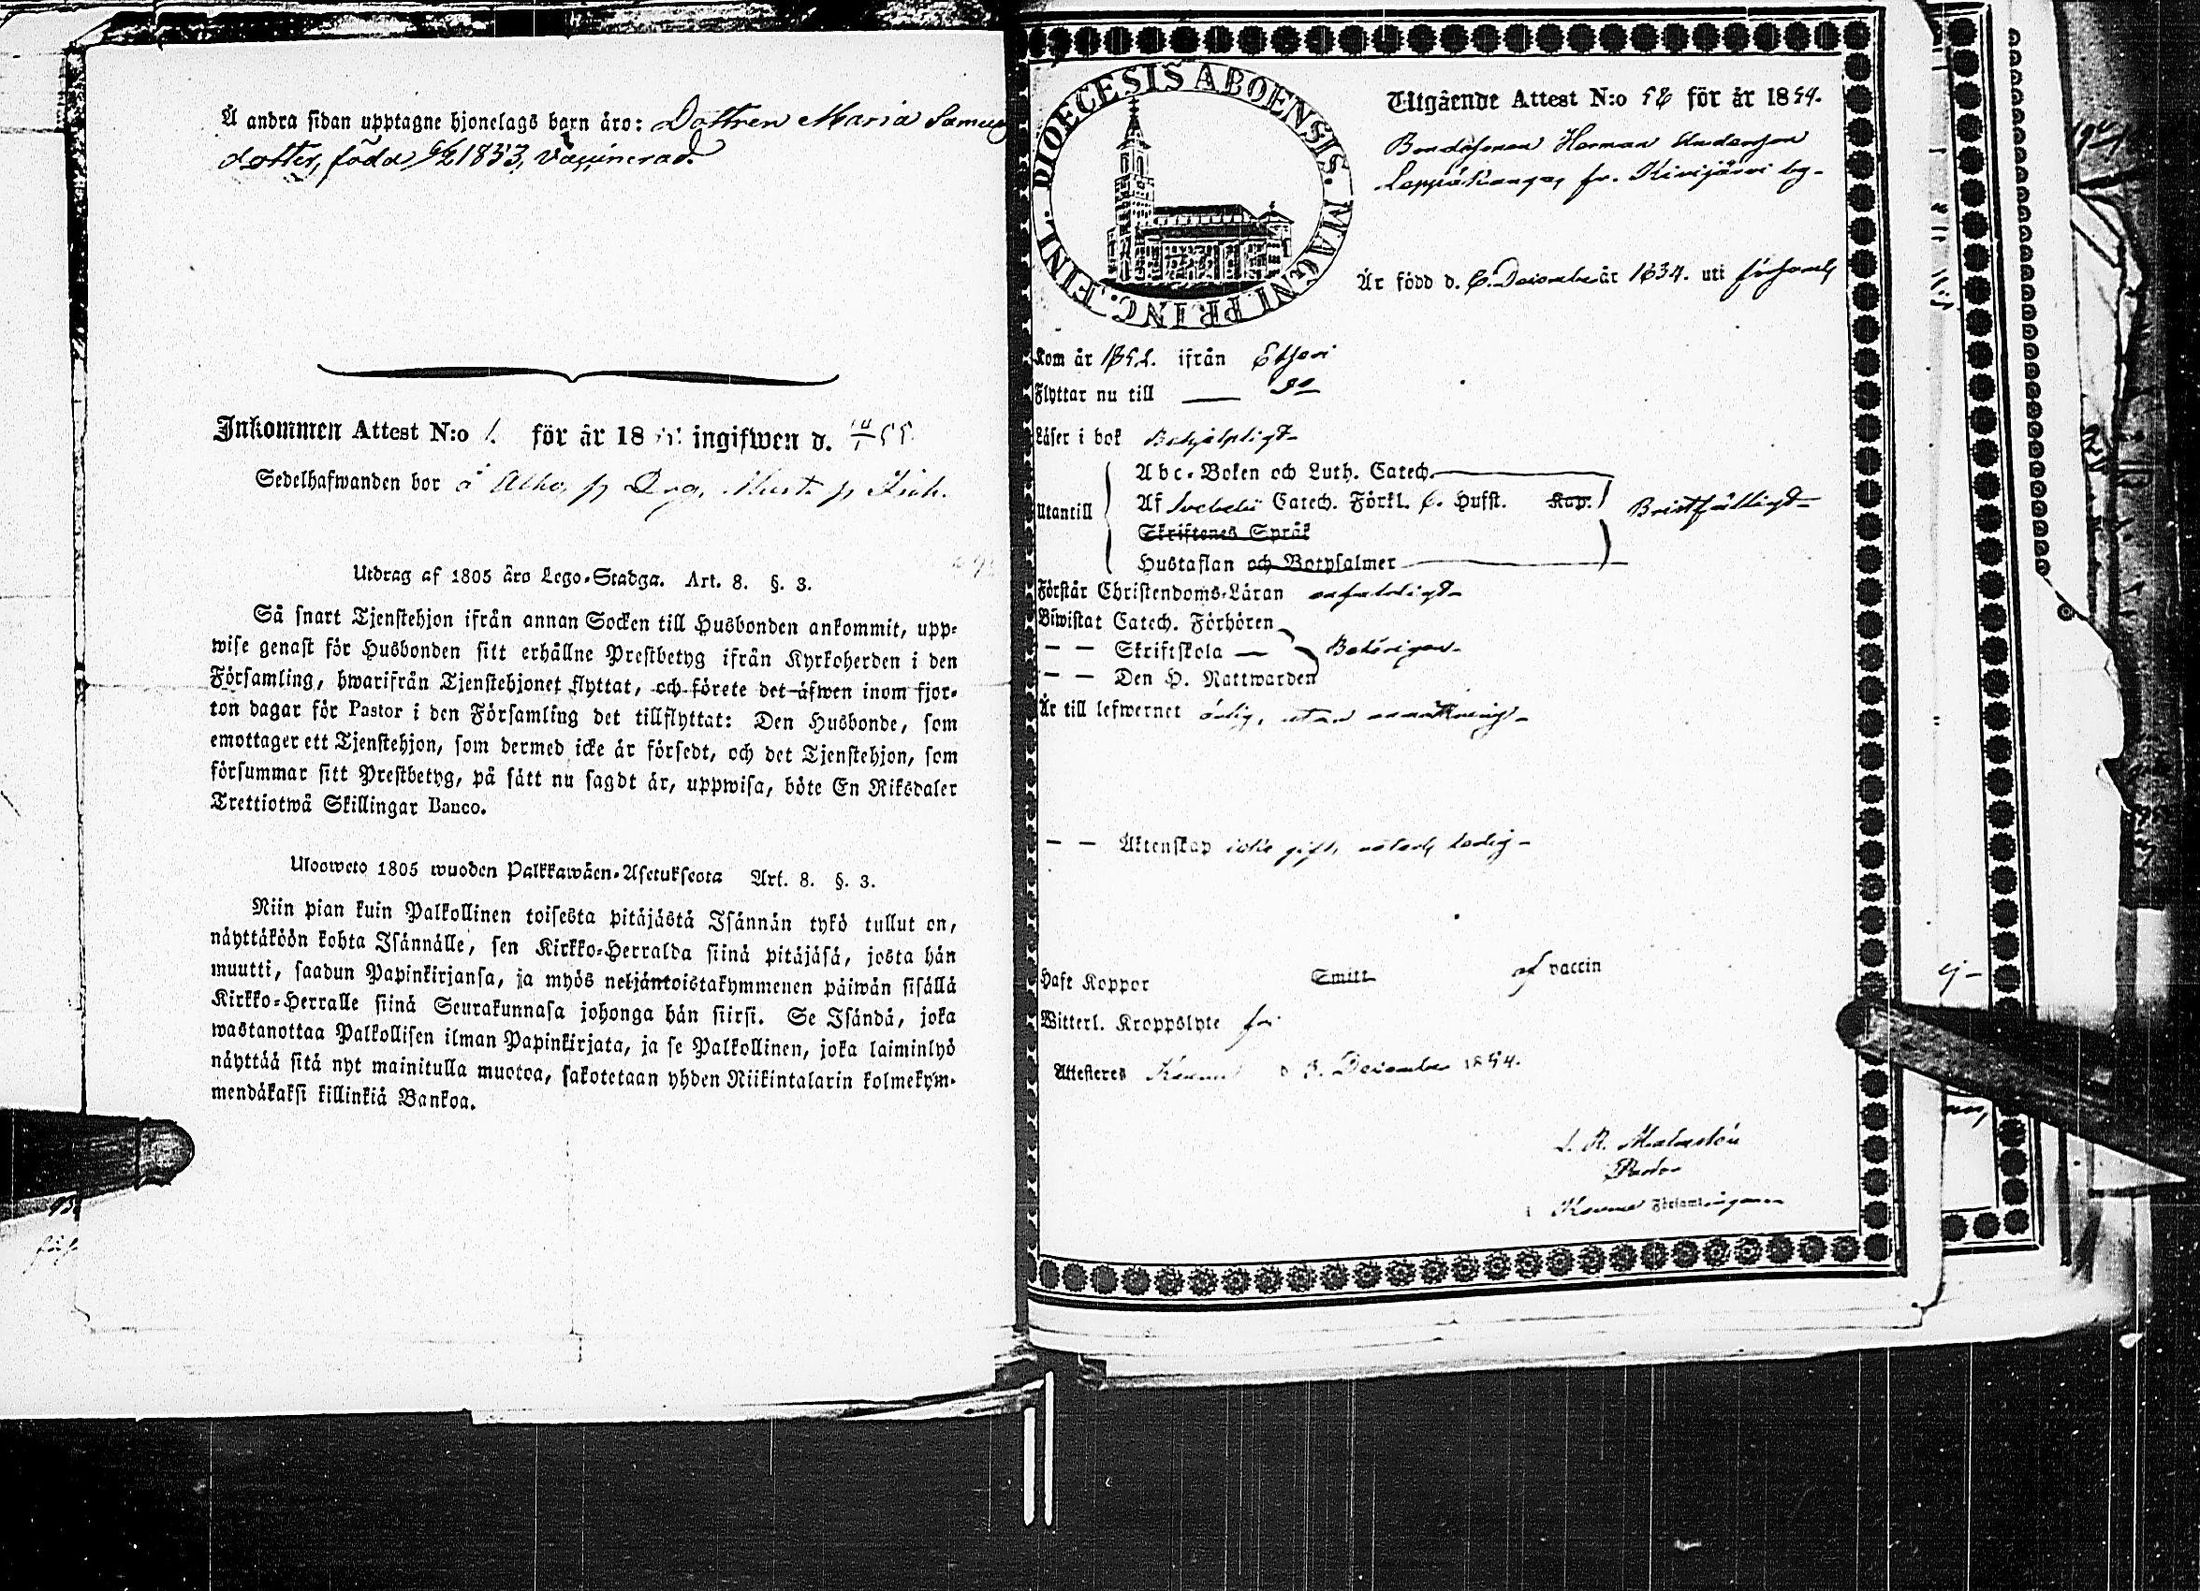 Å andra sidan upptagne hjonelags barn äro: Dottren Maria Samuels
dotter, född 6/2 1853, vaccinerad.
Inkommen Attest N:o 1. för år 1855 ingifwen d.
Sedelhafwanden bor å
Utdrag af 1805 års Lego-Stadga. Art. 8. §. 3.
Så snart Tjenstehjon ifrån annan Socken till Husbonden ankommit, upp-
wise genast för Husbonden sitt erhållne Prestbetyg ifrån Kyrkoherden i den
Församling, hwarifrån Tjenstehjonet flyttat, och förete det äfwen inom fjor-
ton dagar för Pastor i den Församling det tillflyttat: Den Husbonde, som
emottager ett Tjenstehjon, som dermed icke är försedt, och det Tjenstehjon, som
försummar sitt Prestbetyg, på sätt nu sagdt är, uppwisa, böte En Riksdaler
Trettiotwå Skillingar Banco.
Ulosweto 1805 wuoden Palkkawäen-Asetuksesta Art. 8. §. 3.
Niin pian kuin Palkollinen toisesta pitäjästä Isännän tykö tullut on,
näyttäköön kohta Isännälle, sen Kirkko-Herralda siinä pitäjäsä, josta hän
muutti, saadun Papinkirjansa, ja myös neljäntoistakymmenen päiwän sisällä
Kirkko-Herralle siinä Seurakunnasa johonga hän siirsi. Se Isändä, joka
wastanottaa Palkollisen ilman Papinkirjata, ja se Palkollinen, joka laiminlyö
näyttää sitä nyt mainitulla muotoa, sakotetaan yhden Riikintalarin kolmekym-
mendäkaksi killinkiä Bankoa.
DIOECESIS ABOENSIS. MAGNI PRINC. FINL.
Utgående Attest N:o 58 för år 1854.
Bondesonen Herman Anderson
Leppäkangas fr. Kivijärvi by.
Är född d. 6. December år 1834. uti församl.
Kom år 1852. ifrån Etseri
Flyttar nu till — do
Läser i bok Behjelpligt
Utantill
Abc-Boken och Luth. Catech.
Af Svebelii Catech. Förkl. 6. Hufst. Kap. Bristfälligt
Skriftenes Språk
Hustaflan och Botpsalmer
Förstår Christendoms-Läran enfaldigt
Biwistat Catech. Förhören
— — Skriftskola — Behörigen
— — Den H. Nattwarden
Är till lefwernet ärlig, utan anmärkning
— — Äktenskap icke gift, ledig
Haft Koppor Smitt af vaccin
Witterl. Kroppslyte fri
Attesteres d 3. December 1854.
Pastor
i Församlingarne